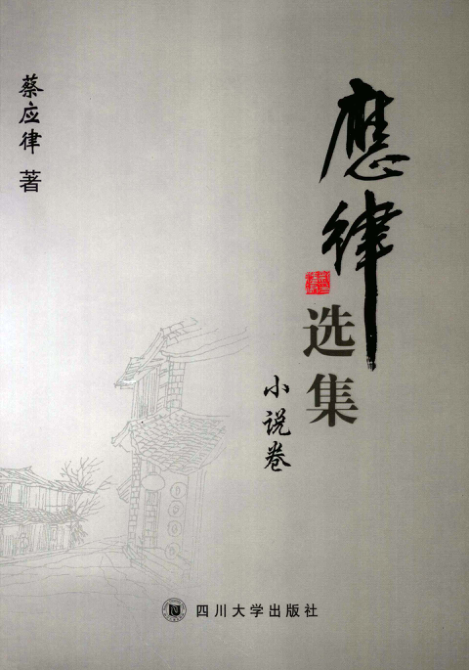 應律
选集
小说卷
蔡应律 著
四川大学出版社